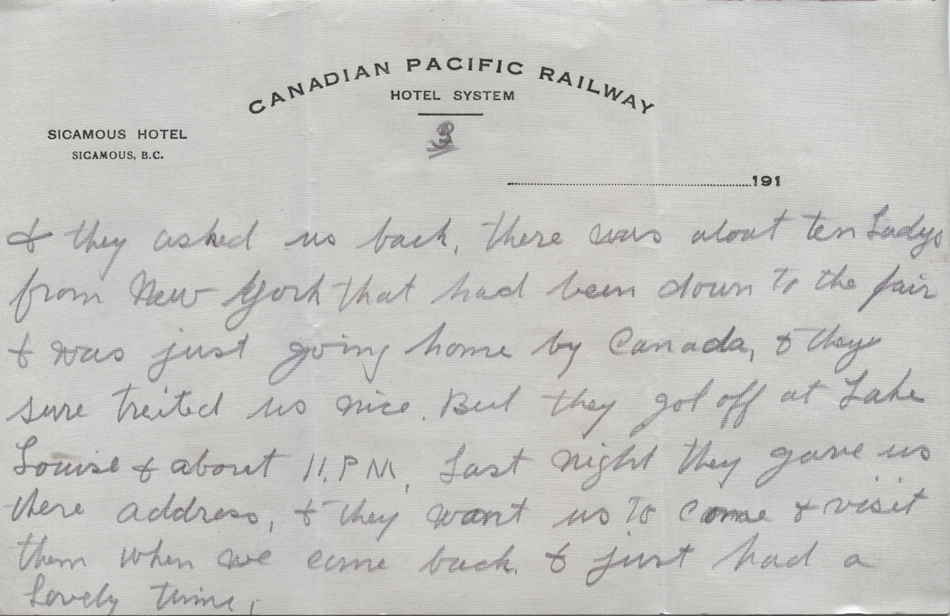 CANADIAN PACIFIC RAILWAY
HOTEL SYSTEM
SICAMOUS HOTEL
SICAMOUS, B.C.
3
191
& they asked us back, there was about ten Ladys
from New York that had been down to the fair
& was just going home by Canada, & they
sure treited us nice. But they got off at Lake
Louise & about 11. P M, Last night they gave us
there address, & they want us to come & visit
them when we come back. & just had a
Lovely time,